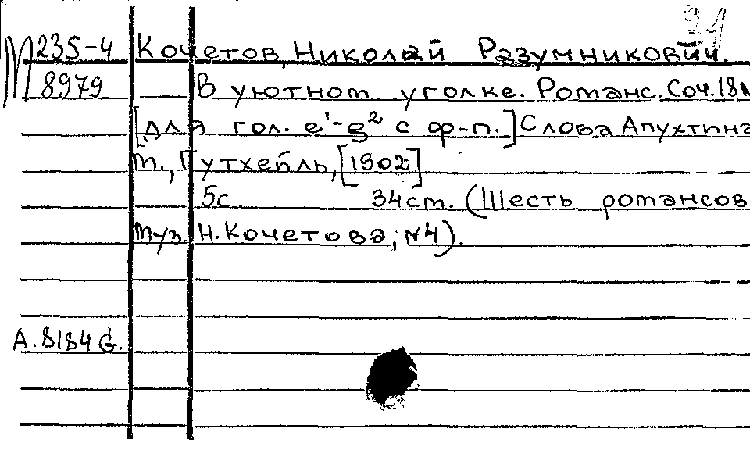 31
М 235-4 Кочетов, Николай Разумникович.
8979 В уютном уголке. Романс. Соч. 18
[для гол. e¹-g² с ф-п.] Слова Апухтина
м., Гутхейль, [1902]
5с 34см. (Шесть романсов
муз Н. Кочетова; №4).
А. 8184 G.